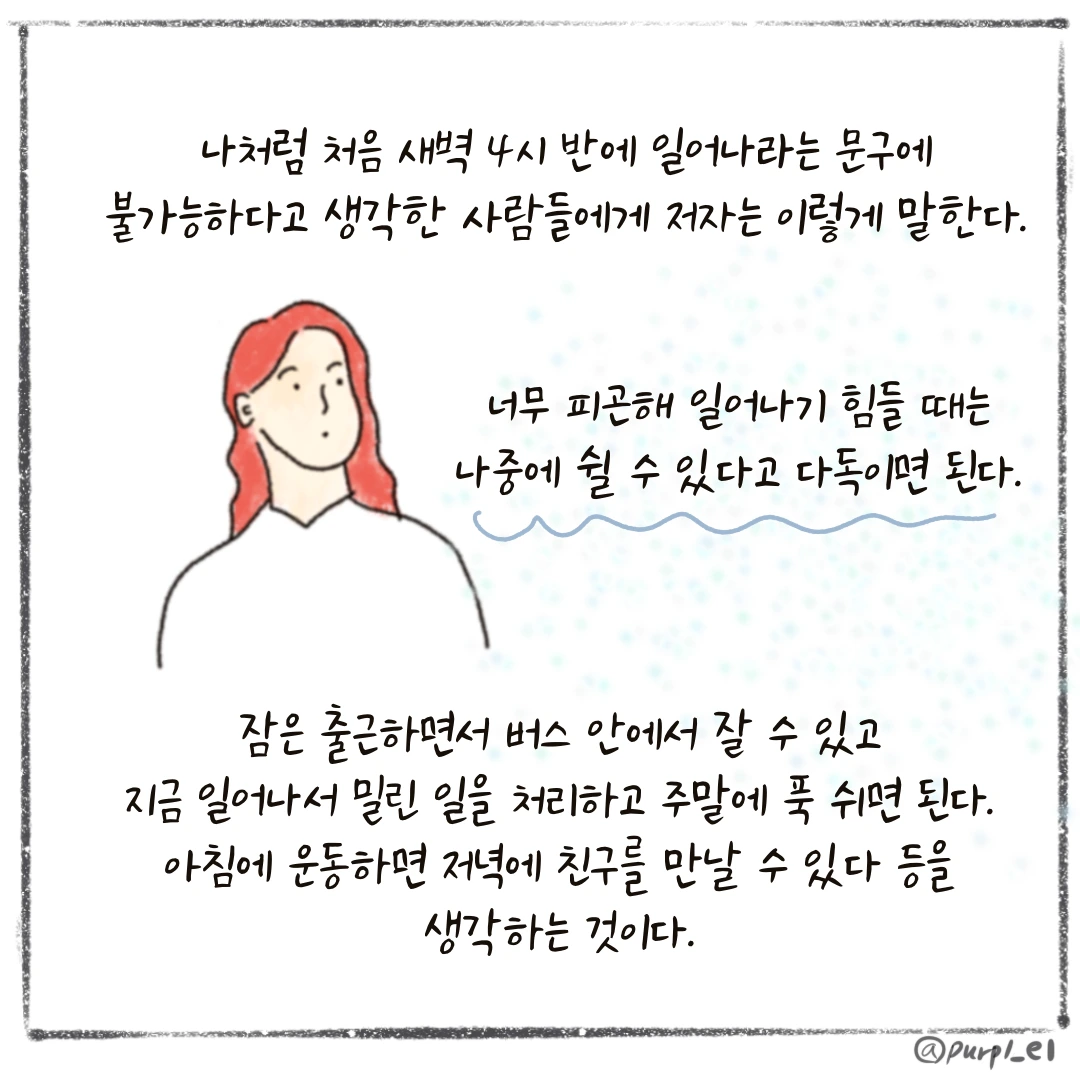 나처럼 처음 새벽 4시 반에 일어나라는 문구에
불가능하다고 생각한 사람들에게 저자는 이렇게 말한다.
너무 피곤해 일어나기 힘들 때는
나중에 쉴 수 있다고 다독이면 된다.
잠은 출근하면서 버스 안에서 잘 수 있고
지금 일어나서 밀린 일을 처리하고 주말에 푹 쉬면 된다.
아침에 운동하면 저녁에 친구를 만날 수 있다 등을
생각하는 것이다.
@purpl_el